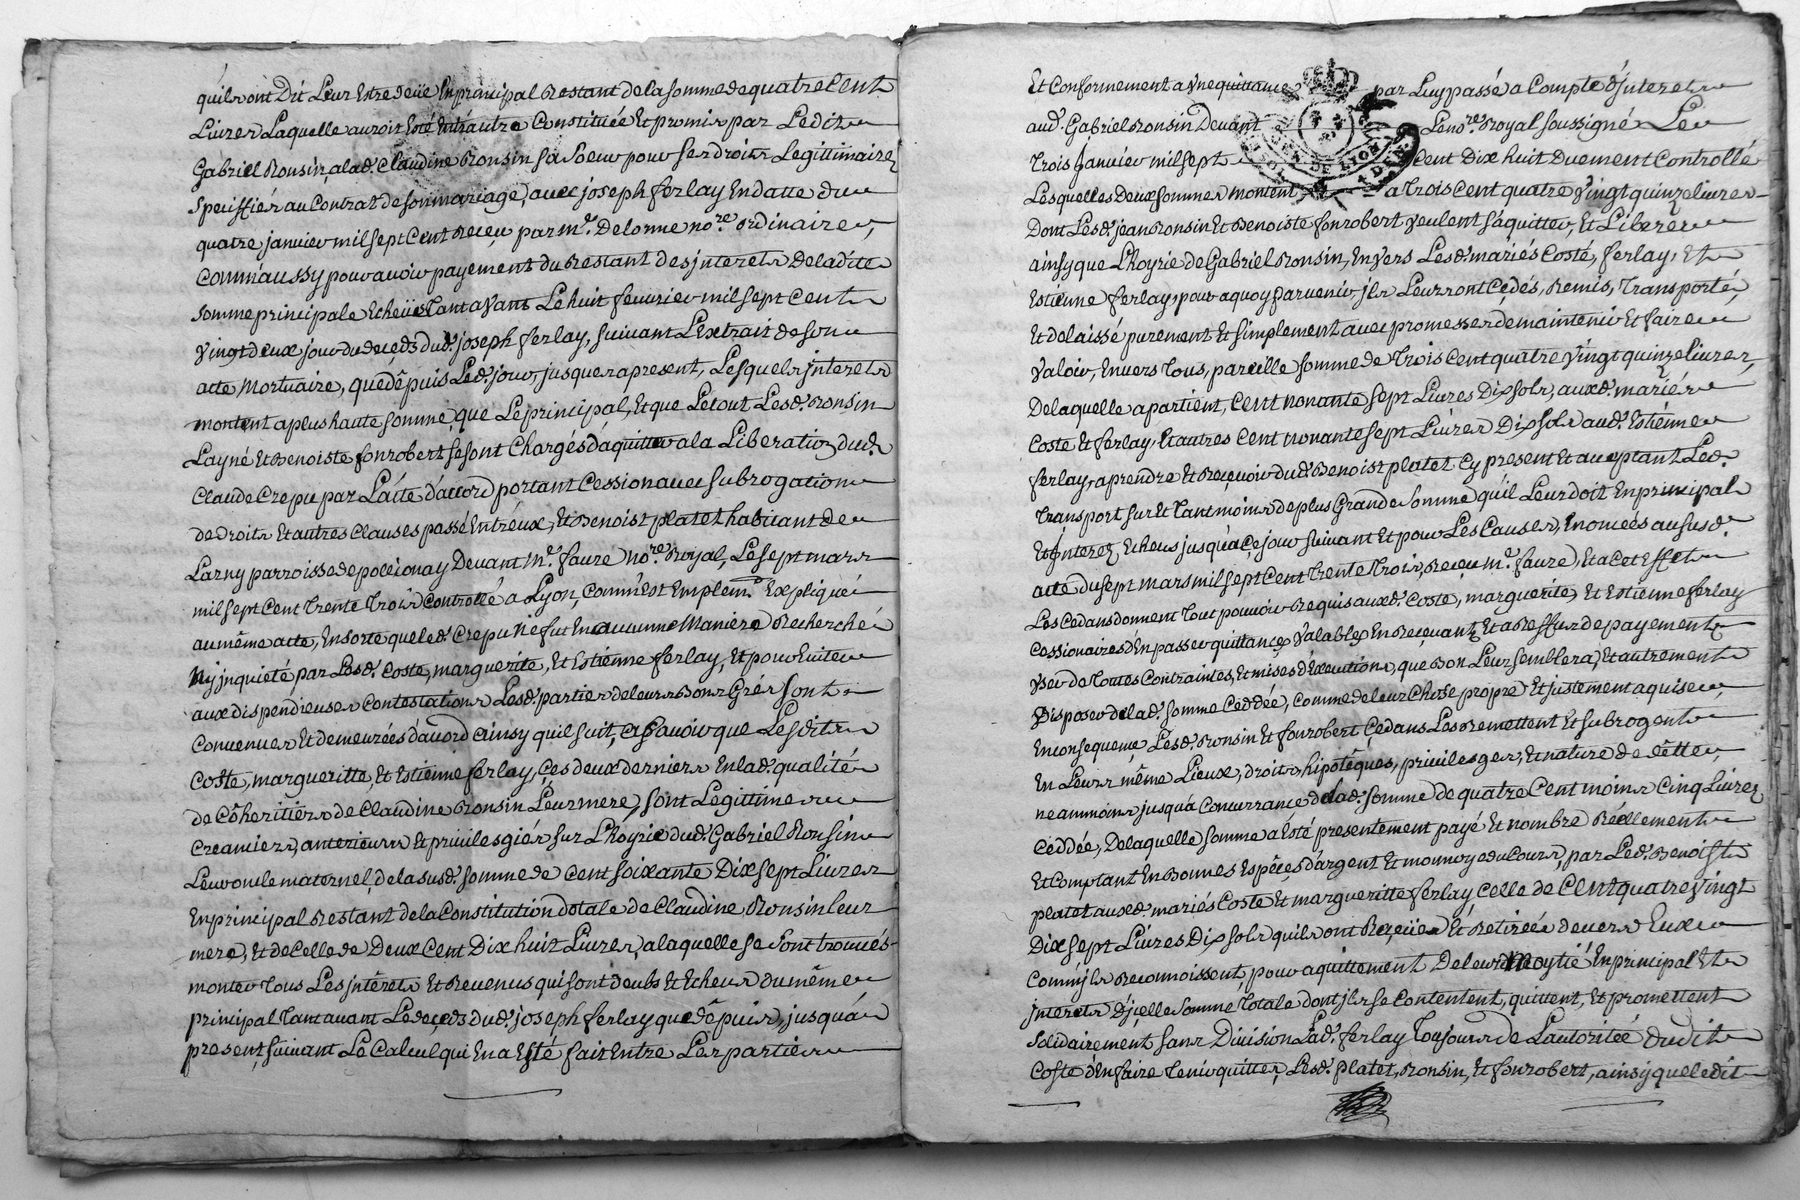 quils ont Dit Leur Estre deüe En principal Restant de la somme de quatre Cent
Livres Laquelle auroit Esté Constituée Et promis par Ledit
Gabriel Ronsin, a lad. Claudine Ronsin sa Soeur pour ses droits Legittimaires
Speciffiés au Contrat de son mariage, avec joseph ferlay En datte du
quatre janvier mil sept Cent Receu par m.e Delorme no.re ordinaire,
Comm'aussy pour avoir payement du Restant des jnterets De ladite
somme principale Echeües Tant avant Le huit fevrier mil sept Cent
vingt deux jour du deceds dud. joseph ferlay, suivant L'Extrait de son
acte Mortuaire, que dêpuis Led. jour, jusques apresent, Lesquels jnterets
montent a plus haute somme, que Le principal, Et que Le tout Lesd. Ronsin
Layné Et Benoiste fonrobert se sont Chargés d'aquitter a la Liberation dud.
Claude Crepu par L'acte d'accord portant Cession avec subrogation
de droits Et autres Clauses passé Entr'eux, Et Benoist platet habitant de
Larny parroisse de pollionay Devant M.e faure No.re Royal, Le sept mars
mil sept Cent Trente Trois Controllé a Lyon, Comm'est Emplem.t Expliqué
au même acte, Ensorte que led. Crepu Ne fut En aucunne Maniere Recherché
Ny jnquieté par Lesd. Coste, marguerite, Et Estienne ferlay, Et pour Eviter
aux dispendieuses Contestations Lesd. parties de leurs Bons Grés sont
Convenues Et demeurées d'accord ainsy quil suit, assavoir que Lesdits
Coste, margueritte, Et Estienne ferlay, Ces deux derniers En lad. qualité
de Côheritiers de Claudine Ronsin Leur mere, sont Legittimes
Creanciers, anterieurs Et privilesgiés sur L'hoyrie dud. Gabriel Ronsin
Leur oncle maternel, de la susd. somme de Cent soixante Dix sept Livres
En principal Restant de la Constitution dotale de Claudine Ronsin leur
mere, Et de Celle de Deux Cent Dix huit Livres, a laquelle se sont trouvés
monter Tous Les jntérêts Et Revenus qui sont deubs Et Echeus du même
principal Tant avant Le deceds dud. joseph ferlay que dêpuis, jusqu'a
present, suivant Le Calcul qui En a Esté fait Entre Les parties
Et Conformement a Vne quittance par Luy passé a Compte d'jnterets
aud. Gabriel Ronsin Devant Le no.re Royal soussigné Le
Trois Janvier mil sept Cent Dix huit Duement Controllé
Lesquelles Deux sommes montent a Trois Cent quatre vingt quinze livres
Dont Lesd. jean Ronsin Et Benoiste fonrobert veulent s'aquitter, Et Liberer
ainsy que L'hoyrie de Gabriel Ronsin, Envers Lesd. mariés Coste, ferlay, Et
Estienne ferlay, pour a quoy parvenir jls Leurs ont Cedés, Remis, Transporté,
Et delaissé purement Et simplement avec promesses de maintenir Et faire
Valoir, Envers Tous, pareille somme de Trois Cent quatre vingt quinze livres,
De laquelle apartient, Cent nonante sept Livres Dix sols, auxd. mariés
Coste Et ferlay, Et autres Cent nonante sept Livres Dix sols aud. Estienne
ferlay, a prendre Et Reçevoir dud. Benoist platet Cy present Et acceptant Led.
Transport sur Et Tant moins de plus Grande somme qu'il Leur doit En principal
Et jnterez, Echeus jusqu'a Ce jour suivant Et pour Les Causes, Enoncées au susd.
acte du sept mars mil sept Cent Trente Trois, Receu M.e faure, Et a Cet Effet
Les Cedans donnent Tout pouvoir Requis auxd. Coste, marguerite, Et Estienne ferlay
Cessionaires d'En passer quittances Valables En Reçevant, Et a Reffus de payement
Vser de Toutes Contraintes, Et mises d'Execution, que Bon Leur semblera, Et autrement
Disposer de lad. somme Ceddée, Comme de leur Chose propre Et justement aquise,
En consequence, Lesd. Ronsin Et fonrobert Cedans Les Remettent Et subrogent
En Leurs même Lieux, droits, hipotêques, privilesges, Et nature de dêtte,
neammoins jusqu'a Concurrance de lad. somme de quatre Cent moins Cinq Livres
Ceddée, De laquelle somme a Esté presentement payé Et nombré Réellement
Et Comptant En Bonnes Espêces d'argent Et monnoye du Cours, par Led. Benoist
platet auxd. mariés Coste Et margueritte ferlay Celle de Cent quatre vingt
Dix sept Livres Dix sols quils ont Reçeües Et Retirées devers Eux
Comm'jls Reconnoissent, pour aquittement De leur Moytié En principal Et
jnterets d'jcelle somme Totale dont jls se Contentent, quittent, Et promettent
solidairement sans Division Lad. ferlay Toujours de L'autorité dudit
Coste d'En faire Tenir quittes, Lesd. platet, Ronsin, Et fonrobert, ainsy que ledit